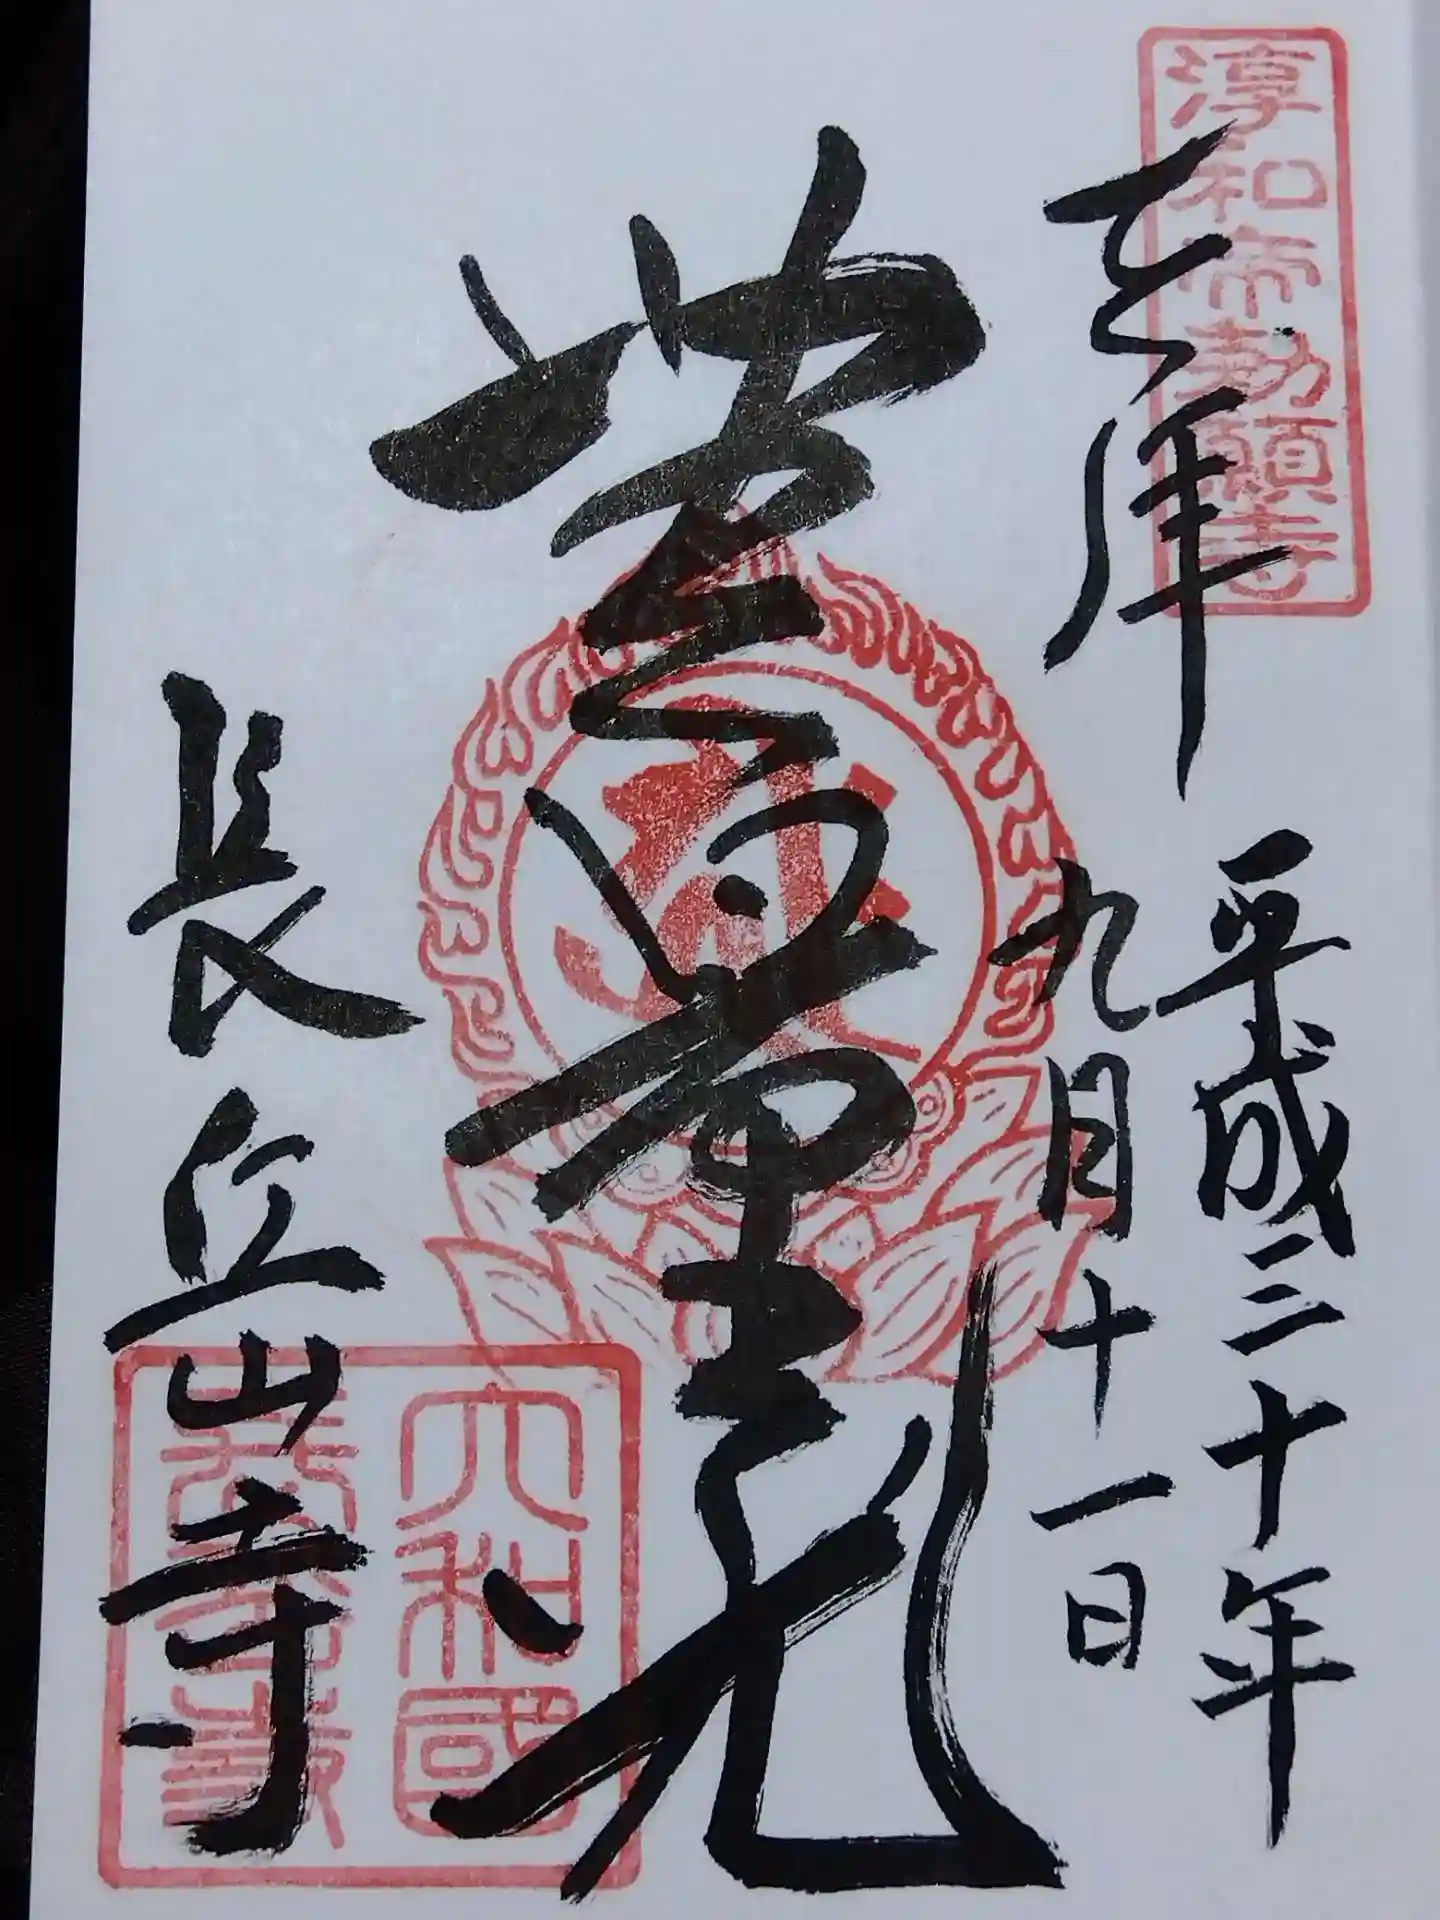 淳和帝勅願寺
奉拝
平成三十年
九月十一日
無量光
長岳寺
大和國